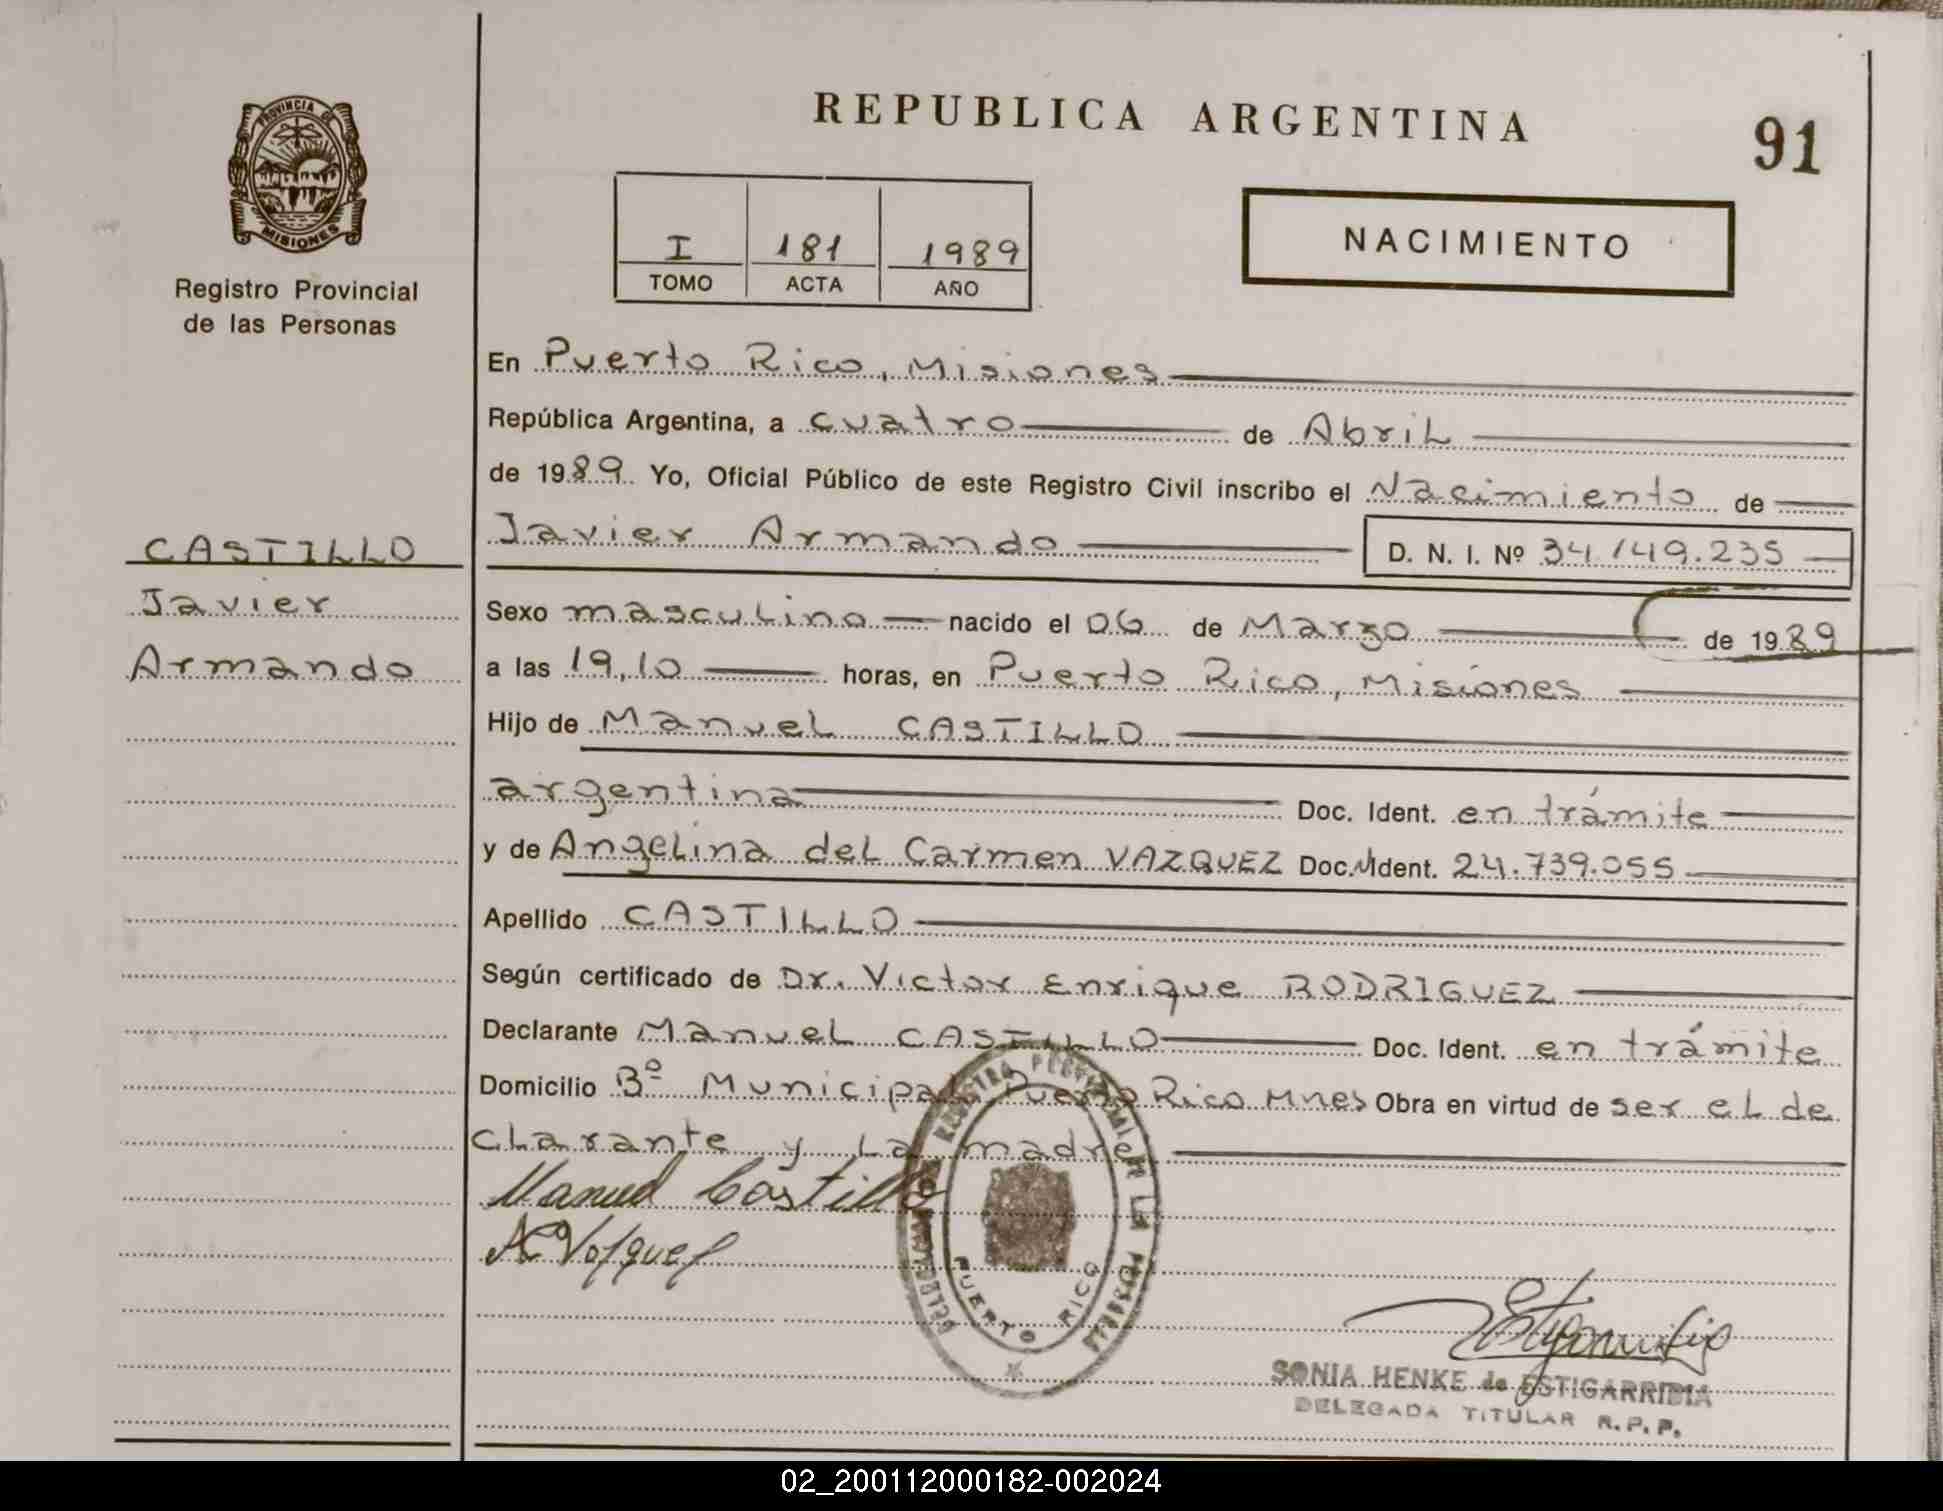 REPUBLICA ARGENTINA
91
PROVINCIA DE
MISIONES
Registro Provincial
de las Personas
I 181 1989
TOMO ACTA AÑO
NACIMIENTO
CASTILLO
Javier
Armando
En Puerto Rico, Misiones
República Argentina, a cuatro de Abril
de 1989. Yo, Oficial Público de este Registro Civil inscribo el Nacimiento de
Javier Armando D. N. I. Nº 34.149.235
Sexo masculino nacido el 06 de Marzo de 1989
a las 19,10 horas, en Puerto Rico, Misiones
Hijo de Manuel CASTILLO
argentina Doc. Ident. en trámite
y de Angelina del Carmen VAZQUEZ Doc. Ident. 24.739.055
Apellido CASTILLO
Según certificado de Dr. Victor Enrique RODRIGUEZ
Declarante Manuel CASTILLO Doc. Ident. en trámite
Domicilio Bº Municipal Puerto Rico Mnes Obra en virtud de ser el de
clarante y la madre
Manuel Castillo
A Vazquez
PUERTO RICO
SONIA HENKE de ESTIGARRIBIA
DELEGADA TITULAR R.P.P.
02_200112000182-002024